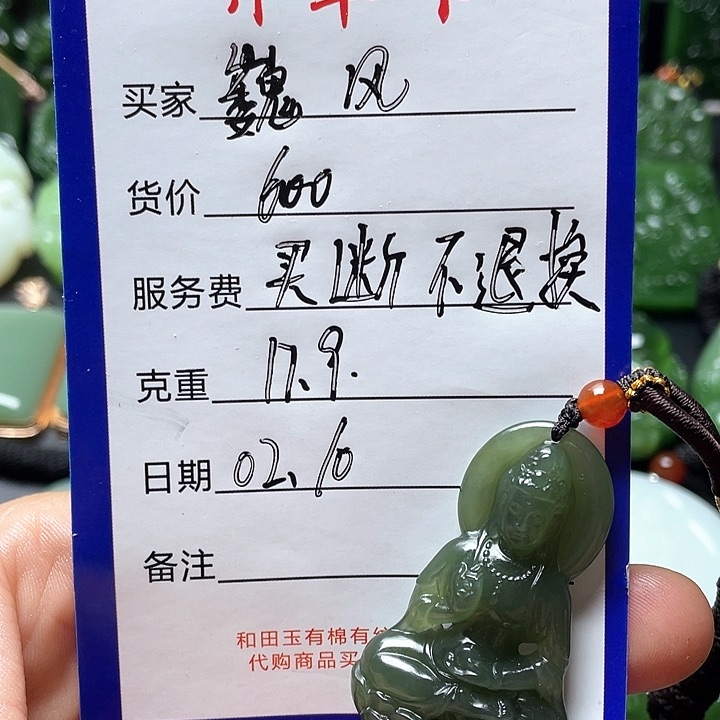 买家 巍 风
货价 600
服务费 买断不退换
克重 17.9.
日期 02.10
备注
和田玉有棉有纹
代购商品买